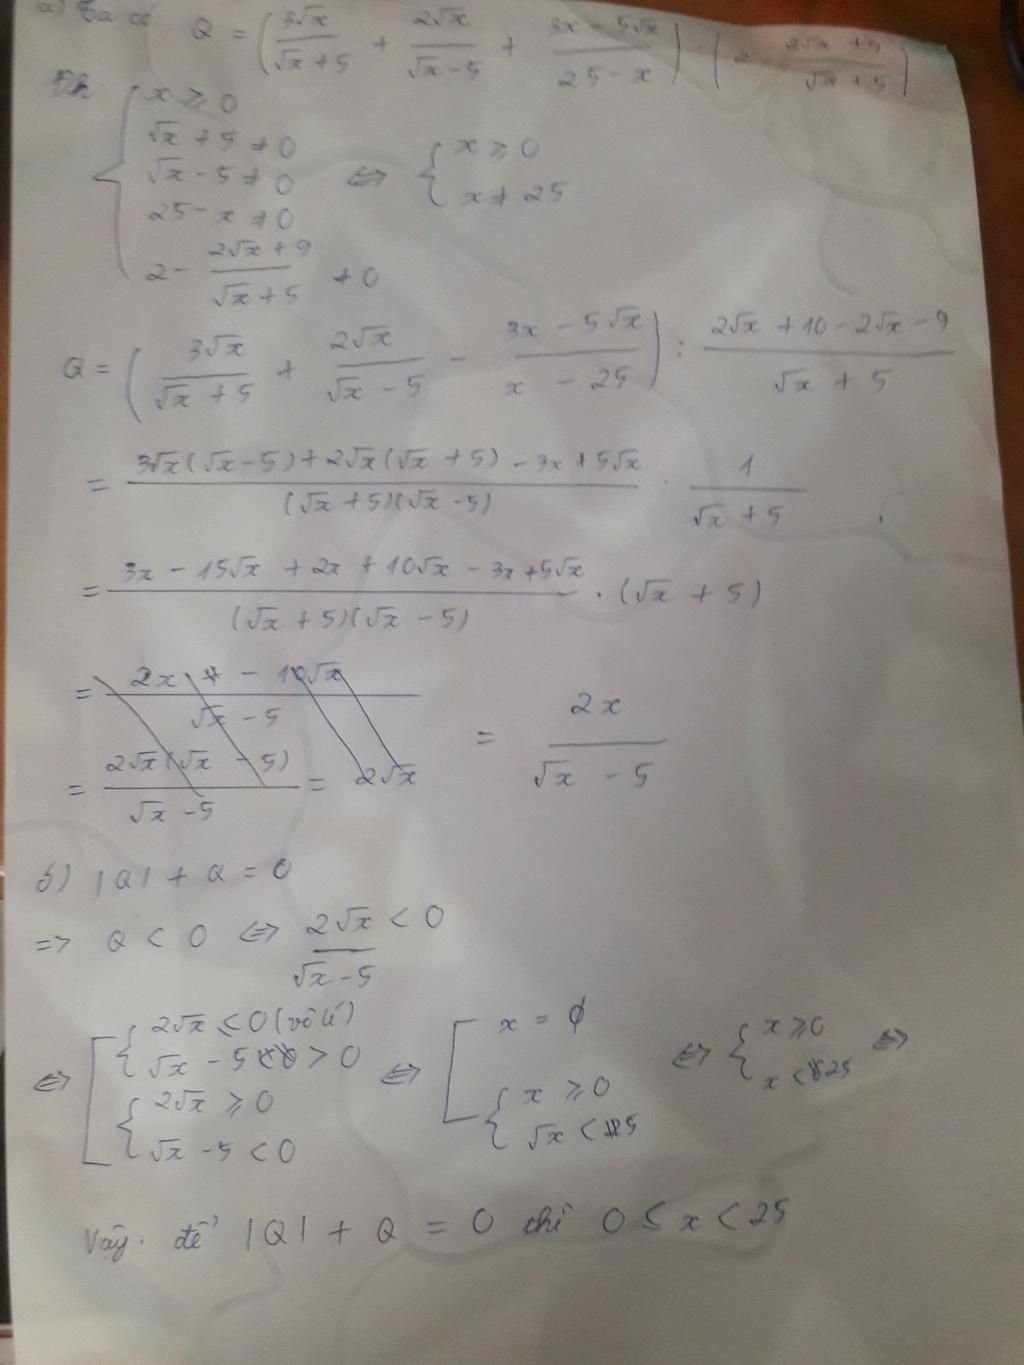 a) Ta có Q = ( 3√x / (√x + 5) + 2√x / (√x - 5) + (3x - 5√x) / (25 - x) ) : ( 2 - (2√x + 9) / (√x + 5) )
Đk { x ≥ 0
√x + 5 ≠ 0
√x - 5 ≠ 0
25 - x ≠ 0
2 - (2√x + 9) / (√x + 5) ≠ 0
⇔ { x ≥ 0
x ≠ 25
Q = ( 3√x / (√x + 5) + 2√x / (√x - 5) - (3x - 5√x) / (x - 25) ) : (2√x + 10 - 2√x - 9) / (√x + 5)
= (3√x(√x - 5) + 2√x(√x + 5) - 3x + 5√x) / ((√x + 5)(√x - 5)) : 1 / (√x + 5)
= (3x - 15√x + 2x + 10√x - 3x + 5√x) / ((√x + 5)(√x - 5)) . (√x + 5)
= (2x - 10√x) / (√x - 5)
= 2√x(√x - 5) / (√x - 5) = 2√x
= 2x / (√x - 5)
b) |Q| + Q = 0
=> Q < 0 ⇔ 2√x / (√x - 5) < 0
⇔ [ { 2√x ≤ 0 (vô lí)
√x - 5 > 0
{ 2√x ≥ 0
√x - 5 < 0
⇔ [ x = ϕ
{ x ≥ 0
√x < 5
⇔ { x ≥ 0
x < 25 ⇔
Vậy: để |Q| + Q = 0 thì 0 ≤ x < 25